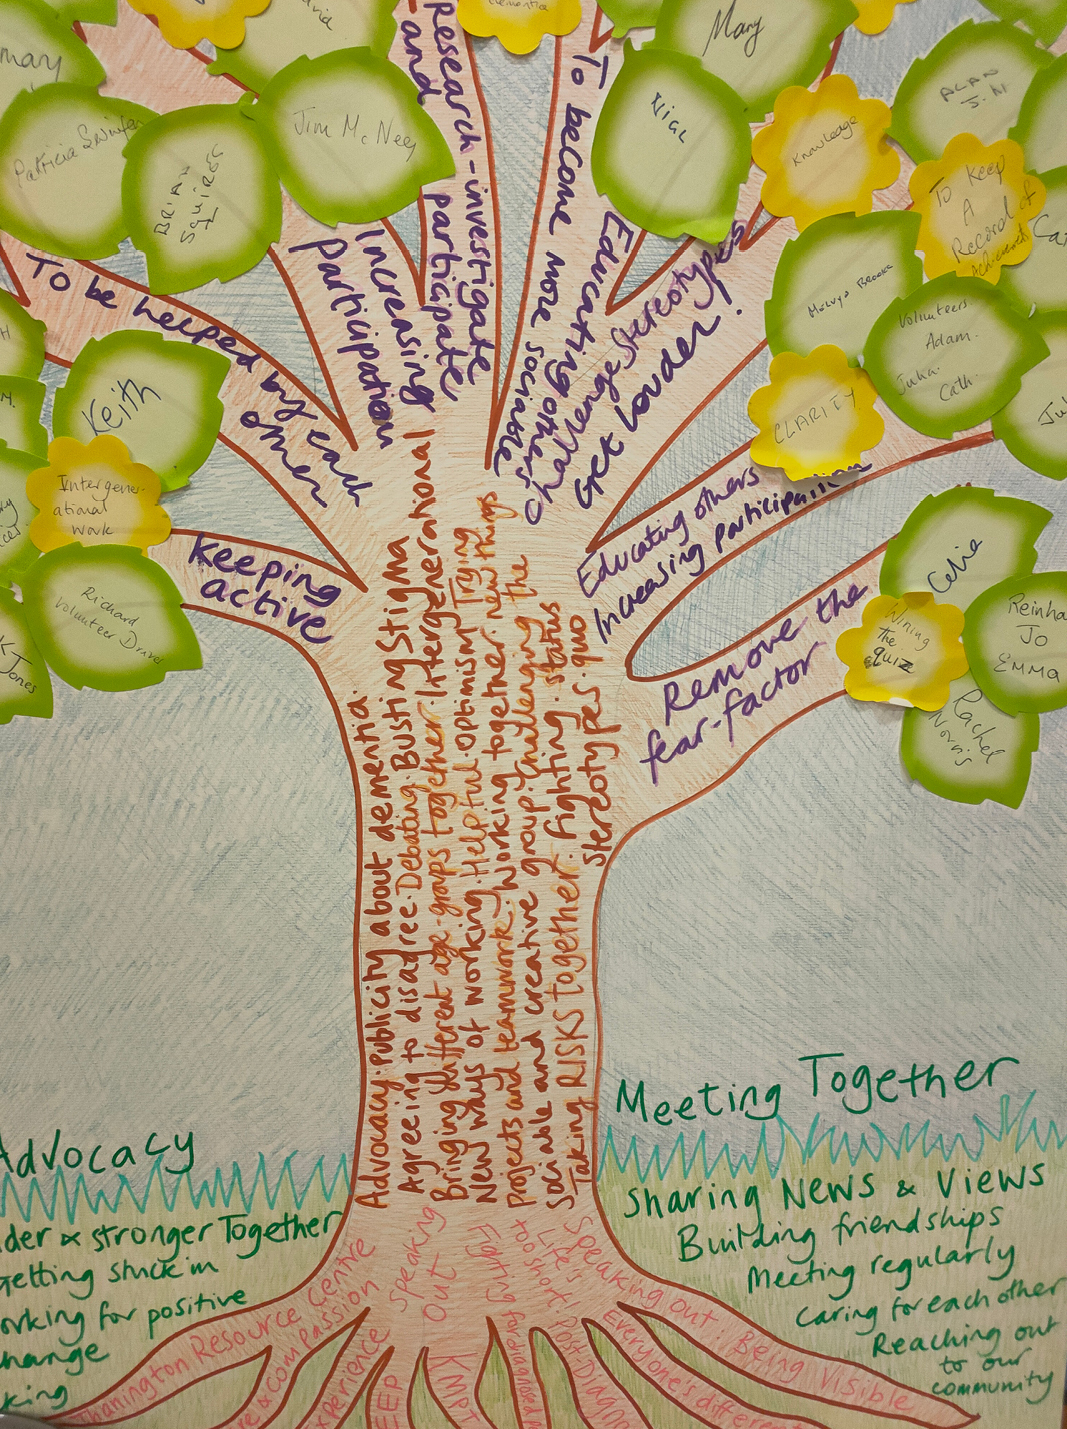 mary
Patricia
BRIAN
SQUIRES
Jim McNee
Mary
NIGL
Knowledge
ALAN
J.N
To Keep
A
Record of
Achievements
Melvyn Brooke
Volunteers
Adam.
Julia.
Cath.
CLARITY
Keith
Intergener-
ational
work
Richard
Volunteer
Jones
Celia
Wining
The
quiz
Reinha
Jo
EMMA
Rachel
Norris
To be helped by each
other
Keeping
active
Increasing
Participation
Research-investigate
and participate
To become more sociable
Educating others
Challenge stereotypes
Get louder!
Educating others
Increasing participation
Remove the
fear-factor
Advocacy. Publicity about dementia.
Agreeing to disagree. Debating. Busting Stigma
Bringing different age-groups together. Intergenerational
New ways of working. Helpful. Optimism. Trying
Projects and teamwork. Working together. new things
Sociable and creative group. Challenging the
Taking RISKS together. Fighting. status quo
stereotypes.
Advocacy
der & stronger Together
Getting stuck in
orking for positive
hange
king
Meeting Together
Sharing News & Views
Building friendships
Meeting regularly
Caring for each other
Reaching out
to our
community
Thanington Resource Centre
& compassion
xperience
EEP
Speaking
out
KMPT
Fighting
Life's
too short!
Post-Diagno
Speaking out. Being Visible
Everyone's different